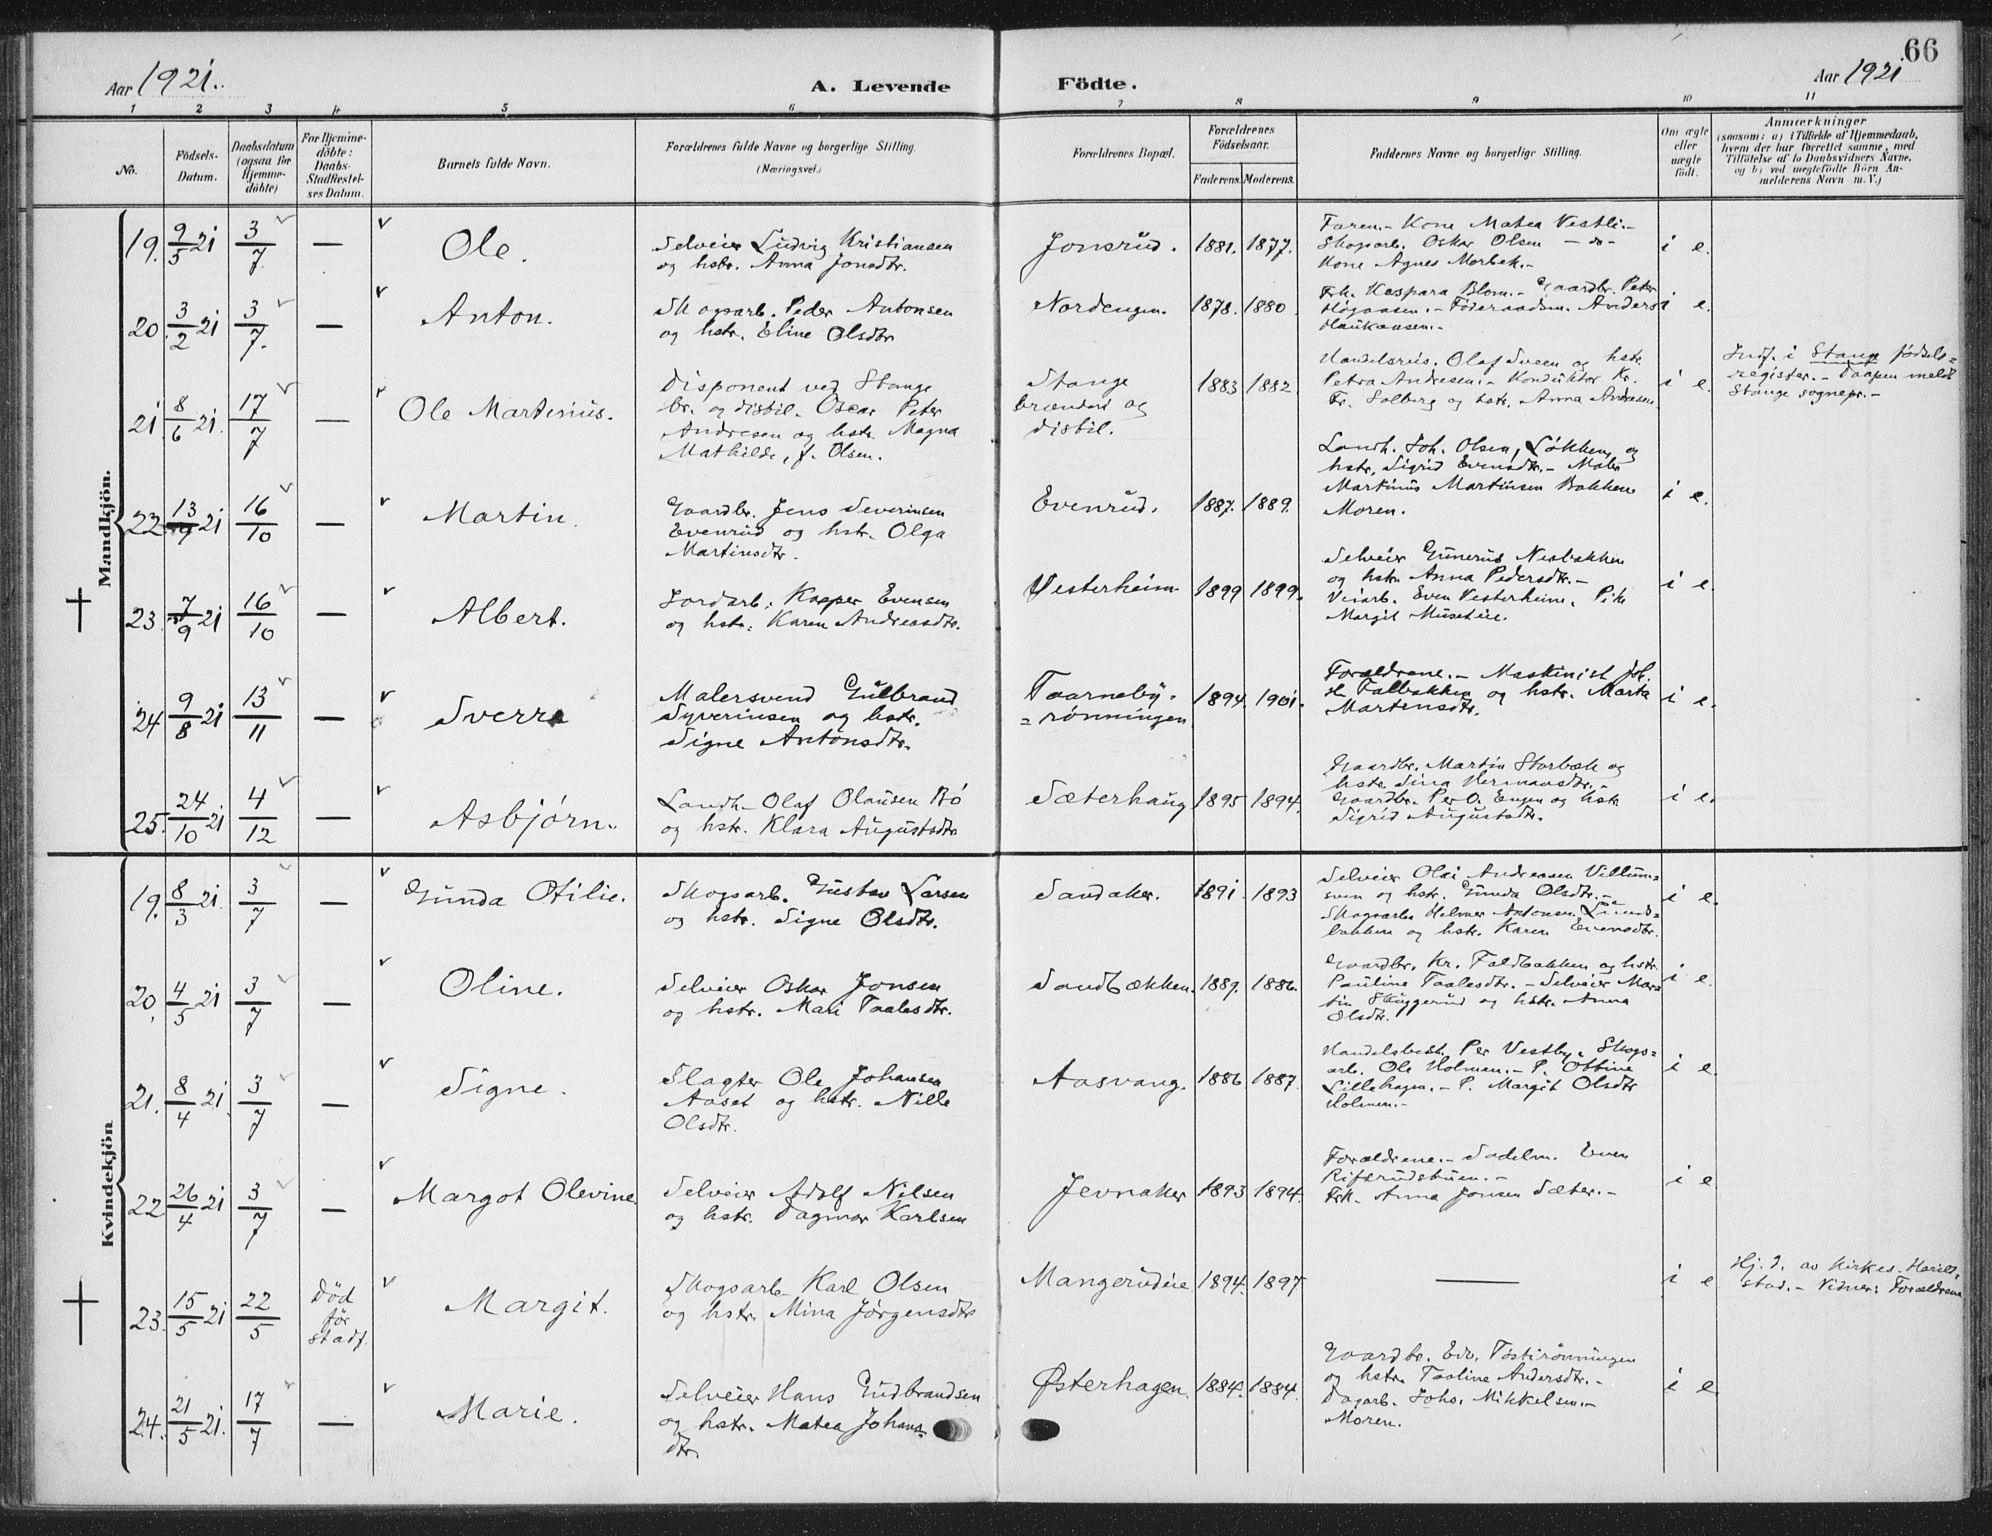 66
Aar 1921.
A. Levende
Födte.
Aar 1921
1 2 3 4 5 6 7 8 9 10 11
No.
Födsels-
Datum.
Daabsdatum
(ogsaa for
Hjemme-
döbte)
For Hjemme-
döbte:
Daabs-
Stadfæstel-
ses Datum.
Barnets fulde Navn.
Forældrenes fulde Navne og borgerlige Stilling.
(Næringsvei.)
Forældrenes Bopæl.
Forældrenes
Födselsaar.
Faderens. Moderens.
Faddernes Navne og borgerlige Stilling.
Om ægte
eller
uægte
födt.
Anmærkninger
(saasom: a) i Tilfælde af Hjemmedaab,
hvem der har forrettet samme, med
Tilföielse af to Daabsvidners Navne.
og b) ved uægtefödte Börn An-
melderens Navn m. V.)
Mandkjön.
19. 9/5 21 3/7 — Ole.
Selveier Ludvig Kristiansen
og hstr. Anna Jonsdtr.
Jonsrud. 1881. 1877.
Faren.- Kone Matea Vestli.-
Skogsarb. Oskar Olsen - do -
Kone Agnes Morbek.-
i e.
20. 3/2 21 3/7. — Anton.
Skogsarb. Peder Antonsen
og hstr. Eline Olsdtr
Nordengen. 1878. 1880.
Frk. Kaspara Blom.- Gaardbr. Peter
Høgaasen.- Føderaadsm. Anders
Haukaasen.-
i e.
21. 8/6 21. 17/7 — Ole Martinius.
Disponent ved Stange
br. og distil. Oscar Peter
Andresen og hstr. Magna
Mathilde, f. Olsen.
Stange
brænderi og
distil.
1883 1882.
Handelsreis. Olaf Sveen og hstr.
Petra Andresen.- Konduktør Kr.
Fr. Solberg og hstr. Anna Andresen.
i e.
Indf. i Stange fødsels=
register.- Daapen meldt
Stange sognepr.-
22. 13/9 21 16/10 — Martin.
Gaardbr. Jens Severinsen
Evenrud og hstr. Olga
Martinsdtr.
Evenrud. 1887. 1889.
Landh. Joh. Olsen, Løkken, og
hstr. Sigrid Evensdtr.- Maler
Martinus Martinsen Bakken
Moren.
i e.
† 23. 7/9 21 16/10 — Albert.
Jordarb. Kasper Evensen
og hstr. Karen Andreasdtr.
Vesterheim 1899 1899.
Selveier Gunerius Nesbakken
og hstr. Anna Pedersdtr.-
Veiarb. Even Vesterheim. Pike
Margit Museteie.
i e.
24 9/8 21 13/11 — Sverre
Malersvend Gulbrand
Syverinsen og hstr.
Signe Antonsdtr.
Taarneby-
=rønningen
1894. 1901.
Forældrene.- Maskinist Joh.
H. Falbakken og hstr. Marta
Martensdtr.
i e.
25. 24/10 21 4/12 — Asbjørn.
Landh. Olaf Olausen Bø
og hstr. Klara Augustsdtr
Sæterhaug 1895 1894.
Gaardbr. Martin Storbæk og
hstr. Sina Hermansdtr.-
Gaardbr. Per O. Engen og hstr
Sigrid Augustsdtr.
i e.
Kvindekjön
19. 8/3 21. 3/7 — Gunda Otilie.
Skogsarb. Gustav Larsen
og hstr. Signe Olsdtr.
Sandaker. 1891. 1893
Selveier Olai Andreasen Villum=
sven og hstr. Gunda Olsdtr.-
Skogsarb. Helmer Antonsen Lunds=
bakken og hstr. Karen Evensdtr.
i e.
20. 4/5 21 3/7 — Oline.
Selveier Oskar Jonsen
og hstr. Mari Paalesdtr.
Sandbækken. 1889. 1886.
Gaardbr. Kr. Faldbakken og hstr.
Pauline Paalesdtr.- Selveier Mar=
tin Skyggerud og hstr. Anna
Olsdtr.
i e.
21. 8/4 21. 3/7 — Signe.
Slagter Ole Johansen
Aaset og hstr. Nille
Olsdtr.
Aasvang. 1886 1887.
Handelsbest. Per Vestby. Skogs=
arb. Ole Holmen.- P. Ottine
Lillehagen.- P. Margit Olsdtr
Holmen.-
i e.
22. 26/4 21 3/7 — Margot Olevine.
Selveier Adolf Nilsen
og hstr. Dagmar Karlsen
Jevnaker 1893 1894.
Forældrene.- Sadelm. Even
Rifsrudstuen.-
Frk. Anna Jonsen Sæter.-
i e.
† 23. 15/5 21 22/5 Død
før
stadf.
Margit.
Skogsarb. Karl Olsen
og hstr. Mina Jørgensdtr
Mangerudeie 1894. 1897
—
i e
Hj. d. av Kirkes. Harild=
stad.- Vidner: Forældrene
24. 21/5 21. 17/7 — Marie.
Selveier Hans Gudbrandsen
og hstr. Matea Johans
dtr.
Østerhagen. 1884. 1884.
Gaardbr. Edv. Tøstirønningen
og hstr. Paaline Andersdtr.-
Dagarb. Johs. Mikkelsen.-
Moren.
i e